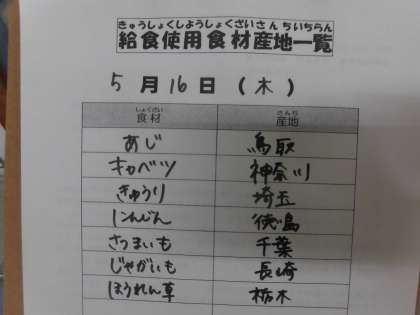 きゅうしょくしようしょくざいさんちいちらん
給食使用食材産地一覧
5月16日(木)
しょくざい さんち
食材 産地
あじ 鳥取
キャベツ 神奈川
きゅうり 埼玉
にんじん 徳島
さつまいも 千葉
じゃがいも 長崎
ほうれん草 栃木